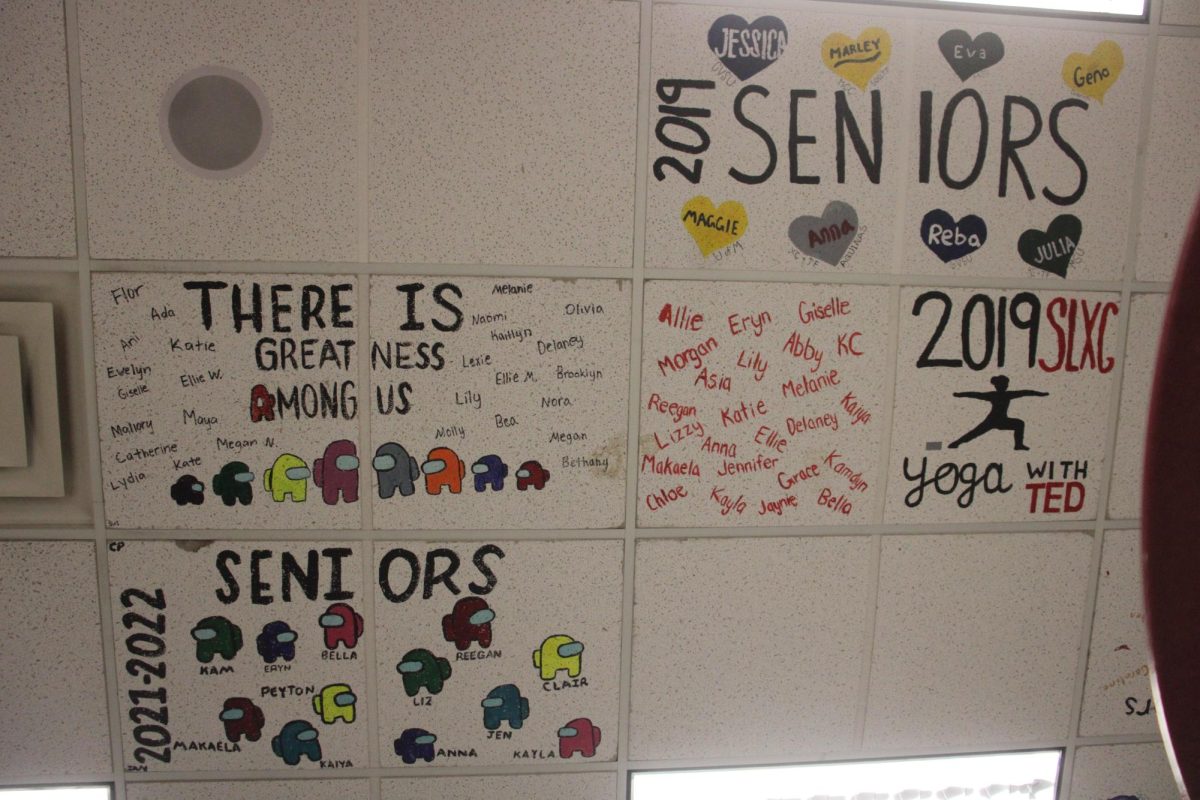 JESSICA
MARLEY
Eva
Geno
2019
SENIORS
MAGGIE
Anna
AQUINAS
Reba
JULIA
THERE IS
GREATNESS
AMONG US
Flor
Ada
Ani
Katie
Evelyn
Giselle
Ellie W.
Mallory
Maya
Catherine
Megan N.
Lydia
Kate
Melanie
Naomi
Olivia
Kaitlyn
Lexie
Delaney
Ellie M.
Brooklyn
Lily
Nora
Molly
Bea
Megan
Bethany
Allie
Eryn
Giselle
Morgan
Lily
Abby
KC
Asia
Melanie
Reegan
Katie
Kaiya
Lizzy
Anna
Ellie
Delaney
Makaela
Jennifer
Grace
Kamdyn
Chloe
Kayla
Jaynie
Bella
2019 SLXC
yoga WITH
TED
CP
SENIORS
2021-2022
KAM
ERYN
BELLA
PEYTON
MAKAELA
KAIYA
REEGAN
LIZ
CLAIR
JEN
ANNA
KAYLA
Caroline